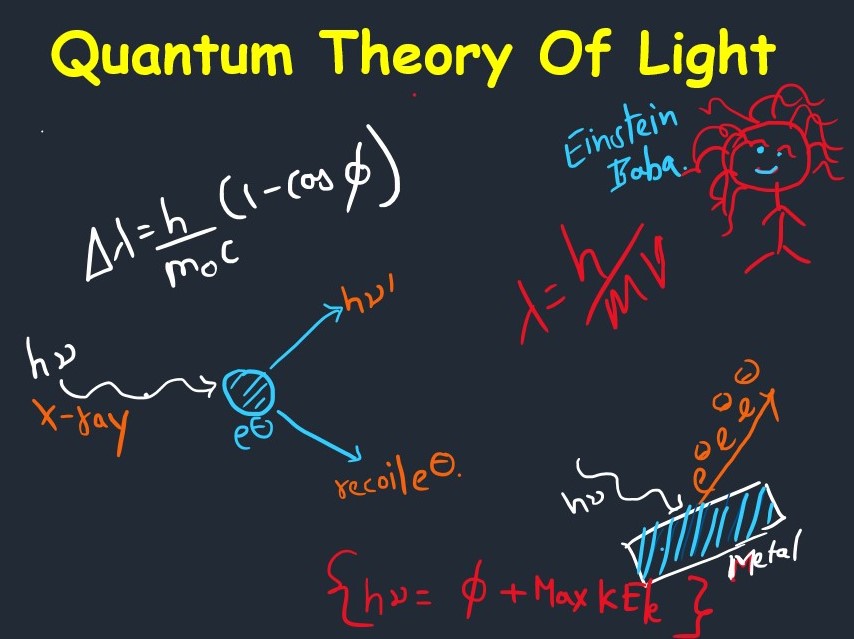 Quantum Theory Of Light
Einstein
Baba.
Δλ = h/m₀c (1 - cos ϕ)
λ = h/mv
hν
x-ray
e⊖
hν'
recoil e⊖.
hν
e⊖ e⊖ e⊖
Metal
{hν = ϕ + Max KE }